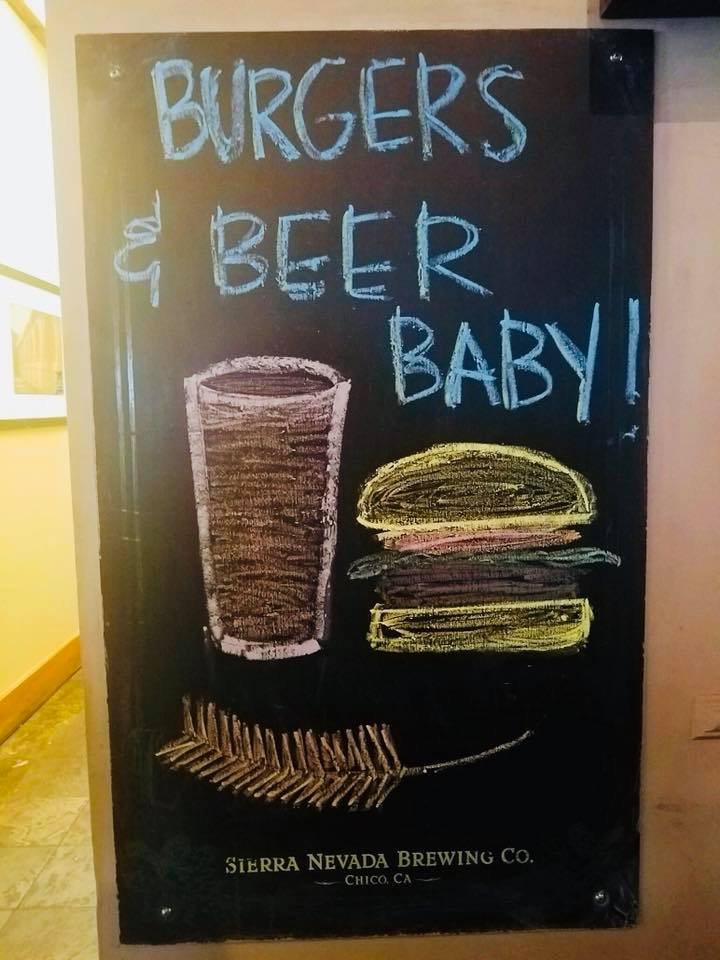 BURGERS
& BEER
BABY!
SIERRA NEVADA BREWING CO.
CHICO, CA